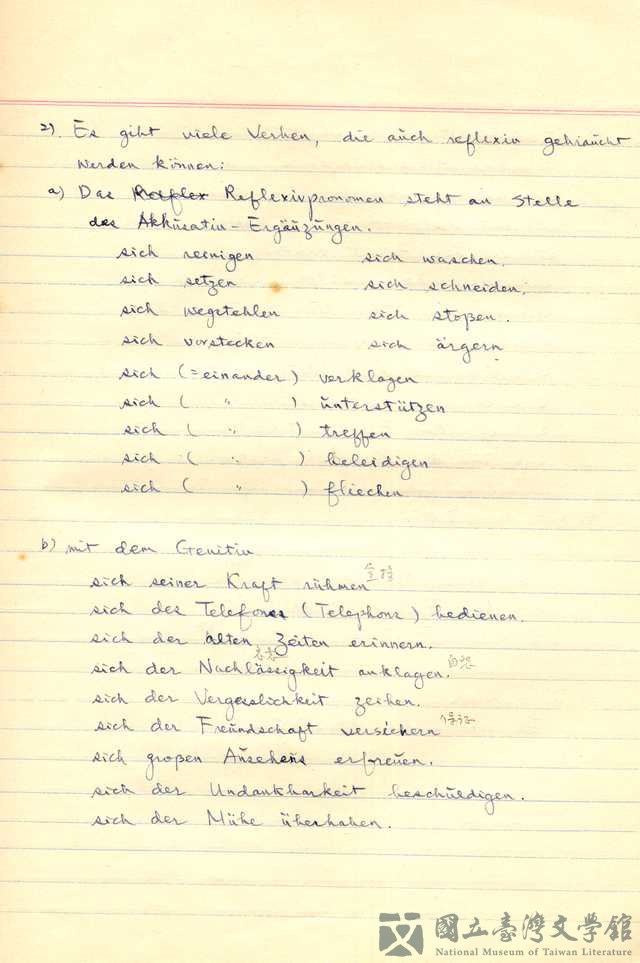 2) Es gibt viele Verben, die auch reflexiv gebraucht
werden können:
a) Das Reflex Reflexivpronomen steht an Stelle
des Akkusativ-Ergänzungen.
sich reinigen sich waschen.
sich setzen sich schneiden,
sich wegstehlen sich stoßen.
sich verstecken sich ärgern
sich (=einander) verklagen
sich ( " ) unterstützen
sich ( " ) treffen
sich ( " ) beleidigen
sich ( " ) fliechen
b) mit dem Genitiv
sich seiner Kraft rühmen
sich des Telefones (Telephons) bedienen.
sich der alten Zeiten erinnern.
sich der Nachlässigkeit anklagen.
sich der Vergesslichkeit zeihen.
sich der Freundschaft versichern
sich großen Ansehens erfreuen.
sich der Undankbarkeit beschuldigen.
sich der Mühe überhaben.
國立臺灣文學館
National Museum of Taiwan Literature